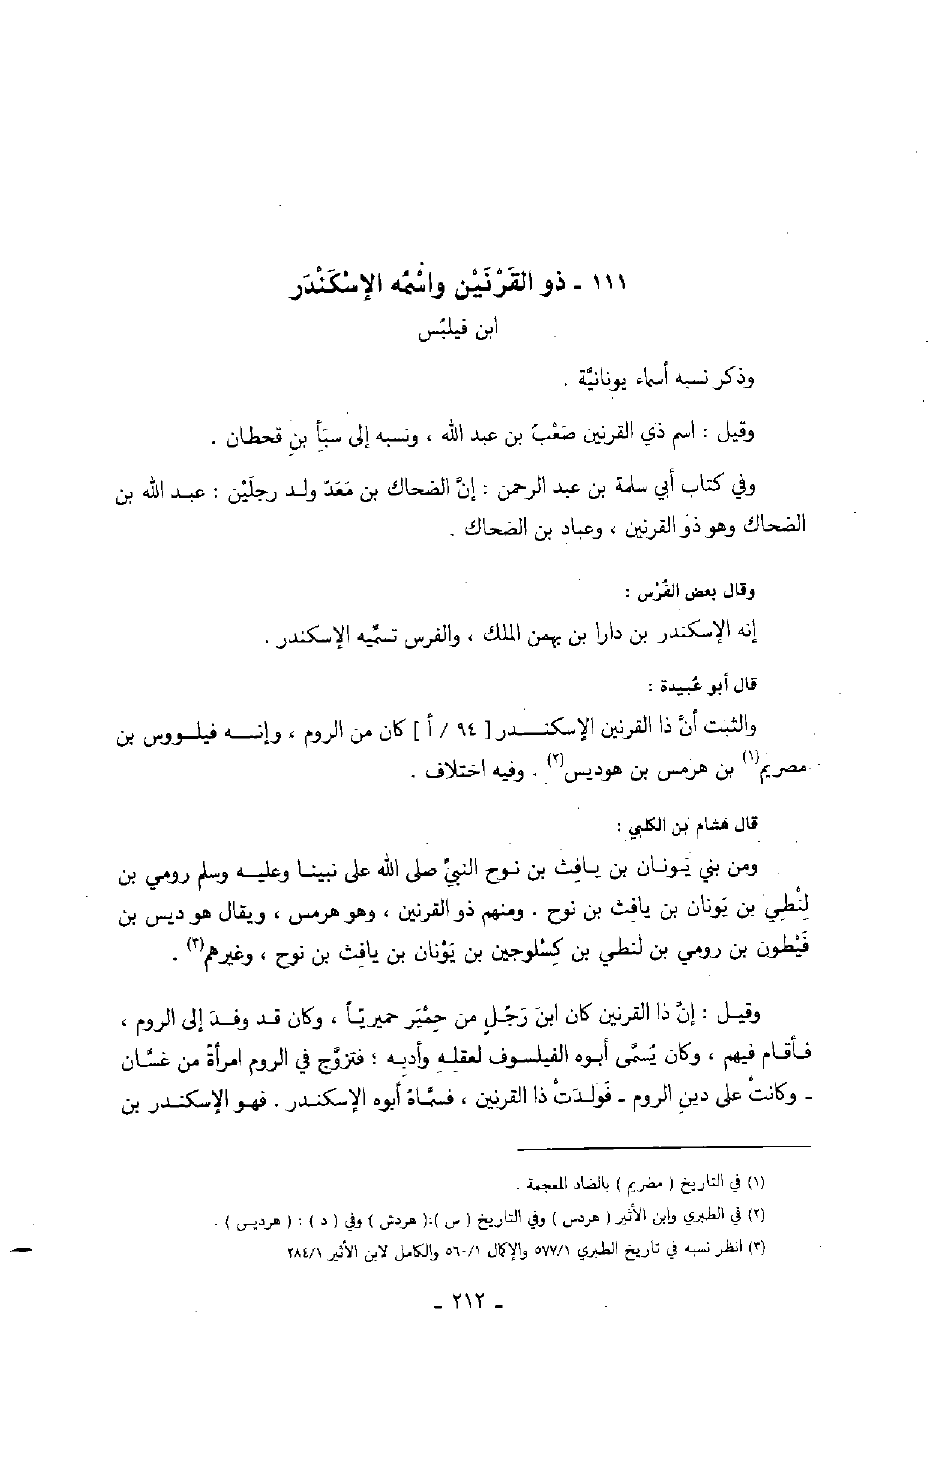 ١١١ - ذو القَرْنَيْن واسْمُه الإسْكَنْدَر
ابن فيلبّس
وذكر نسبه أسماء يونانيَّة .
وقيل : اسم ذي القرنين صَعْبُ بن عبد الله ، ونسبه إلى سبَأ بنِ قحطان .
وفي كتاب أبي سلمة بن عبد الرحمن : إنَّ الضحاك بن مَعَدّ ولد رجلَيْن : عبد الله بن
الضحاك وهو ذو القرنين ، وعباد بن الضحاك .
وقال بعض الفُرْس :
إنه الإسكندر بن دارا بن بهمن الملك ، والفرس تسمِّيه الإسكندر .
قال أبو عُبيدة :
والثبت أنَّ ذا القرنين الإسكندر [ ٩٤ / أ ] كان من الروم ، وإنه فيلووس بن
مصريم(١) بن هرمس بن هوديس(٢) . وفيه اختلاف .
قال هشام بن الكلبي :
ومن بني يونان بن يافث بن نوح النبيِّ صلى الله على نبينا وعليه وسلم رومي بن
لِنْطِي بن يَونان بن يافث بن نوح . ومنهم ذو القرنين ، وهو هرمس ، ويقال هو ديس بن
فَيْطون بن رومي بن لنطي بن كسْلوجين بن يَوْنان بن يافث بن نوح ، وغيرهم(٣) .
وقيل : إنَّ ذا القرنين كان ابنَ رَجُلٍ من حِمْيَر حميريّاً ، وكان قد وفدَ إلى الروم ،
فأقام فيهم ، وكان يُسمَّى أبوه الفيلسوف لعقلِهِ وأدبِه ؛ فتزوَّج في الروم امرأةً من غسَّان
- وكانتْ على دين الروم - فولدَتْ ذا القرنين ، فسمَّاهُ أبوه الإسكندر . فهو الإسكندر بن
(١) في التاريخ ( مضريم ) بالضاد المعجمة .
(٢) في الطبري وابن الأثير ( هردس ) وفي التاريخ ( س ):( هردش ) وفي ( د ) : ( هرديس ) .
(٣) انظر نسبه في تاريخ الطبري ٥٧٧/١ والإكمال ٥٦٠/١ والكامل لابن الأثير ٢٨٤/١
- ٢١٢ -